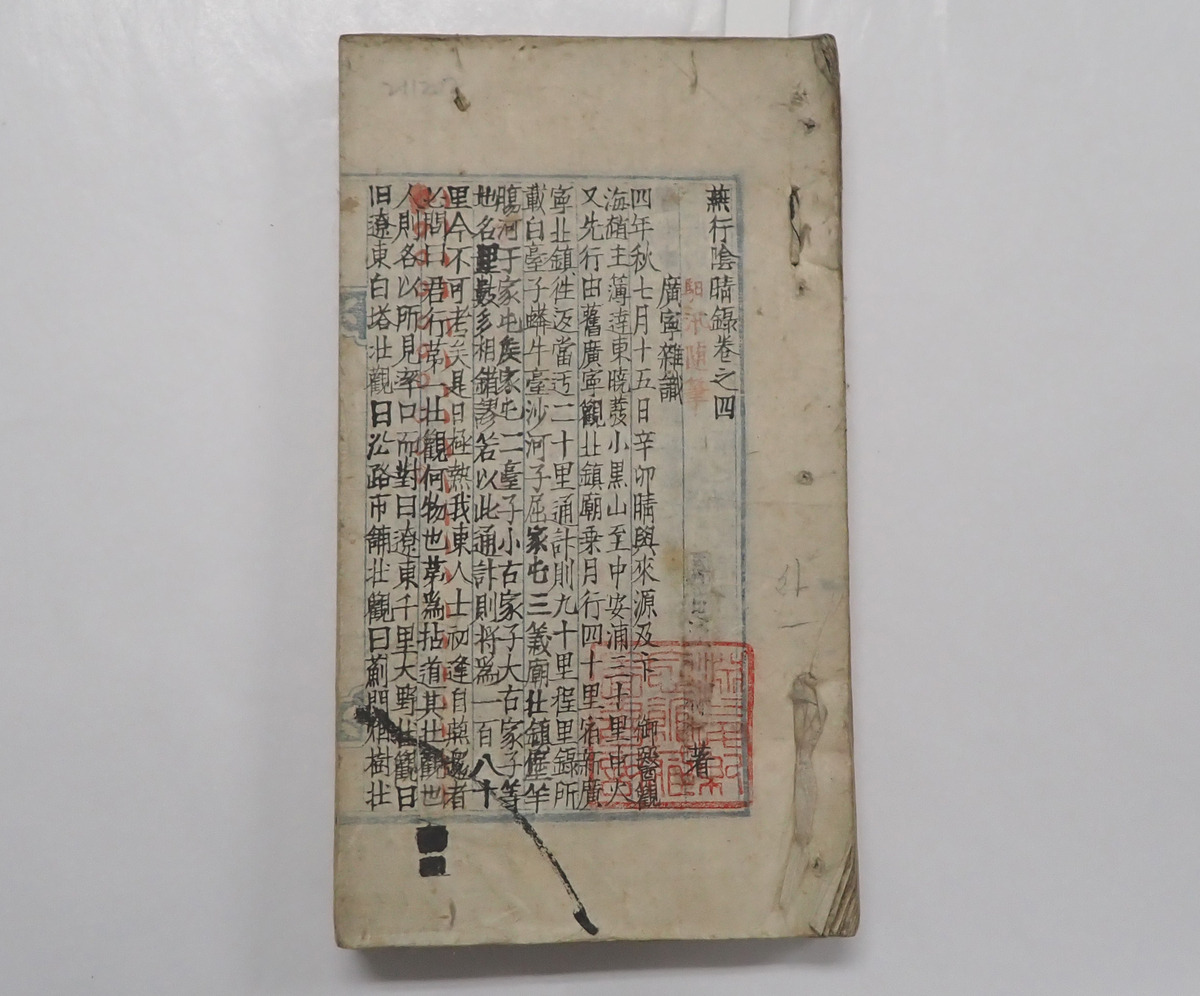 燕行陰晴錄卷之四
馹汛隨筆
著
廣寧雜識
四年秋七月十五日辛卯晴與來源及卞 御醫觀
海趙主簿達東曉發小黑山至中安浦三十里中火
又先行由舊廣寧觀北鎮廟乗月行四十里宿新廣
寧北鎮徃返當迃二十里通計則九十里程里錄所
載白臺子蟒牛臺沙河子屈家屯三義廟北鎮堡羊
膓河于家屯矦家屯二臺子小古家子大古家子等
地名里數多相錯謬若以此通計則将爲一百八十
里今不可考矣是日極熱我東人士初逢自燕還者
必問曰君行第一壯觀何物也第爲拈道其壯觀也
人則各以所見率口而對曰遼東千里大野壯觀曰
旧遼東白塔壯觀曰沿路市鋪壯觀曰薊門烟樹壯